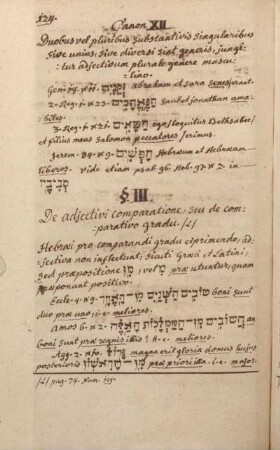 124.
Canon XII
Duobus vel pluribus substantivis singularibus
sive unius, sive diversi sint generis, jungi-
tur adjectivum plurale genere mascu-
lino.
Gen: 18. v. 11. זְקֵנִים abraham et sara senes erant.
2. Reg: 1. v. 23. הַנֶּאֱהָבִים Saul et jonathan ama-
biles.
3. Reg: 1. v. 21. חַטָּאִים ego (loquitur Bethsabee)
et filius meus Salomon peccatores erimus.
Jerem. 34. v. 9. חָפְשִׁים Hebræum et Hebræam
liberos. vide etiam psal. 96. Neh. 9. v. 2. in
סְבִיבָיו
§. III.
De adjectivi comparatione, seu de com-
parativo gradu. /1/
Hebræi pro comparandi gradu exprimendo, ad-
jectiva non inflectunt, sicuti Græci et Latini;
sed præpositione מִן, vel מִ præ utuntur, quam
præponunt positivo.
Eccle. 4. v. 9. טוֹבִים הַשְּׁנַיִם מִן־הָאֶחָד boni sunt
duo præ uno; i. e. meliores.
Amos 6. v. 2. הֲטוֹבִים מִן־הַמַּמְלָכוֹת הָאֵלֶּה an
boni sunt præ regnis illis? i. e. meliores.
Agg. 2. v. 10. גָּדוֹל magna erit gloria domus hujus
posterioris מִן־הָרִאשׁוֹן præ priori illa. i. e. major.
/1/ pag. 74. Num. 155.